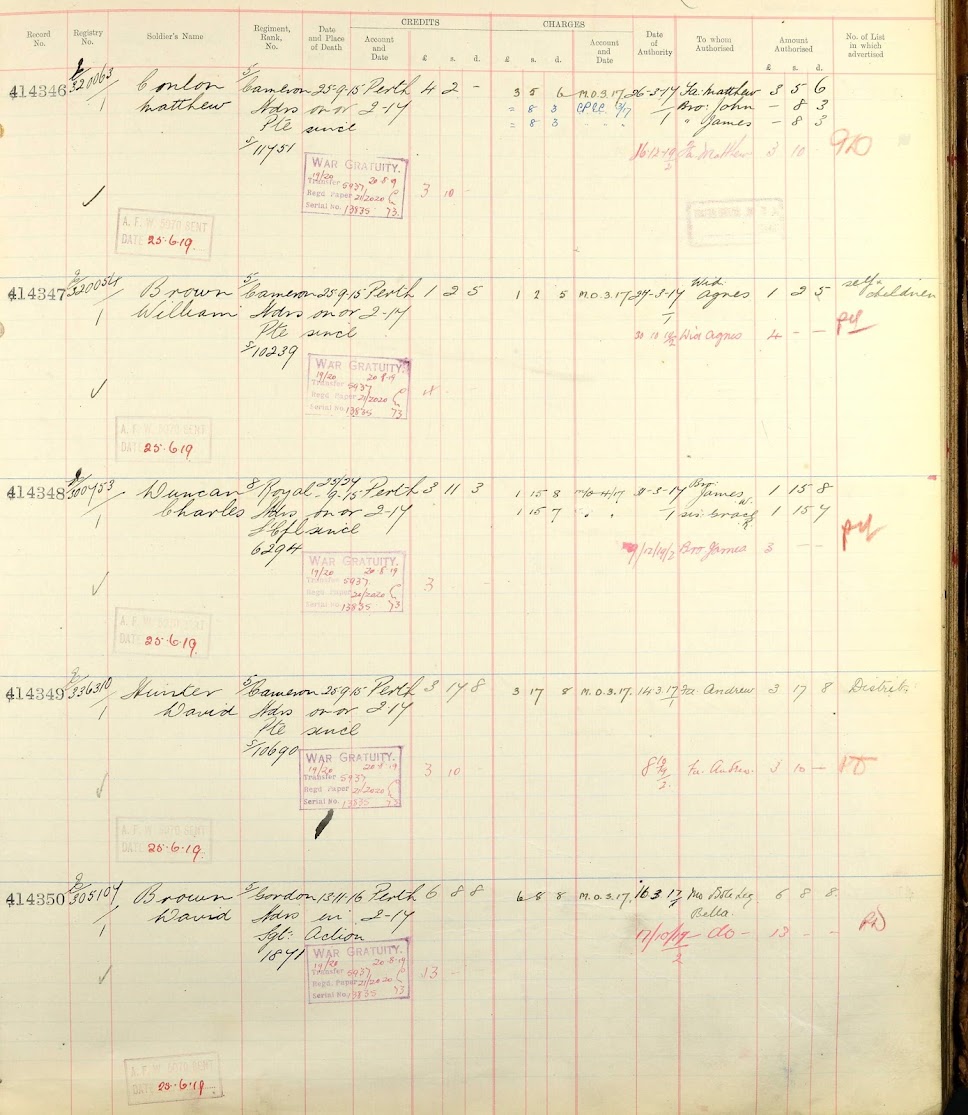 CREDITS CHARGES
Record No. Registry No. Soldier's Name Regiment, Rank, No. Date and Place of Death Account and Date £ s. d. £ s. d. Account and Date Date of Authority To whom Authorised Amount Authorised £ s. d. No. of List in which advertised
414346 E/320063/1 Conlon 5/Cameron 25-9-15 Perth 4 2 - 3 5 6 M.O.3.17 26-3-17 Fa: Matthew 3 5 6
Matthew Hdrs on or 2-17 " 8 3 Bro: John - 8 3
Pte since " 8 3 " James - 8 3
S/11751 16-12-19/2 Fa Matthew 3 10
WAR GRATUITY.
19/20 20-8-9
Transfer 5937
Regd Paper 21/2020 3 10 -
Serial No. 13835 73.
A. F. W. 5070 SENT
DATE 25.6.19.
414347 320054/1 Brown 5/Cameron 25-9-15 Perth 1 2 5 1 2 5 M.O.3.17 27-3-17/1 Wid. Agnes 1 2 5 self & children
William Hdrs on or 2-17
Pte since 30 10 19/2 Wid Agnes 4 - -
S/10239
WAR GRATUITY.
19/20 20-8-19
Transfer 5937
Regd Paper 21/2020 4
Serial No. 13835 73
A. F. W. 5070 SENT
DATE 25.6.19
414348 300753/1 Duncan 8/Royal 25/27-9-15 Perth 3 11 3 1 15 8 M.O.4/17 Bro: James W. 1 15 8
Charles Hdrs on or 2-17 1 15 7 " " sis: Grace R. 1 15 7
L/Cpl since
6294 9/12/19/2 Bro James 3 - -
WAR GRATUITY.
19/20 20-8-19
Transfer 5937
Regd Paper 21/2020 3
Serial No. 13835 73
A. F. W. 5070 SENT
DATE 25.6.19.
414349 336310/1 Hunter 5/Cameron 25-9-15 Perth 3 17 8 3 17 8 M.O.3.17. 14.3.17/1 Fa: Andrew 3 17 8 Distrib.
David Hdrs on or 2-17
Pte since
S/10690
WAR GRATUITY.
19/20 20-8-19
Transfer 5937 3 10 Fa. Andrew. 3 10 -
Regd Paper 21/2020
Serial No. 13835 73
A. F. W. 5070 SENT
DATE 25.6.19.
414350 305107/1 Brown 5/Gordon 13-11-16 Perth 6 8 8 6 8 8 M.O.3.17. 16 3 17/1 Sole Leg 6 8 8.
David Hdrs in 2-17 Bella.
Sgt: Action 17/10/19/2 - do - 13 - -
1871
WAR GRATUITY.
19/20 20-8-19
Transfer 5937 13
Regd. Paper 21/2020
Serial No. 13835 73
A. F. W. 5070 SENT
DATE 25.6.19.